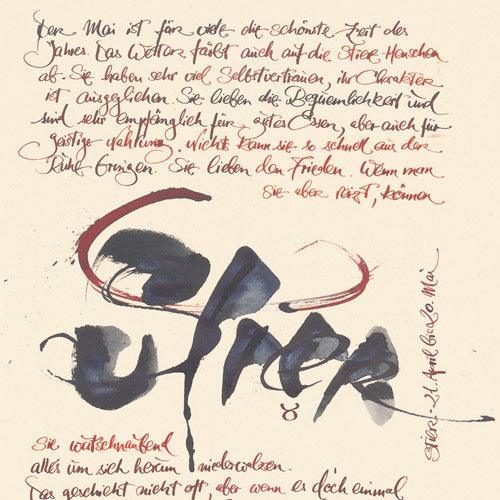 Der Mai ist für viele die schönste Zeit des
Jahres. Das Wetter färbt auch auf die Stier-Menschen
ab. Sie haben sehr viel Selbstvertrauen, ihr Charakter
ist ausgeglichen. Sie lieben die Bequemlichkeit und
sind sehr empfänglich für gutes Essen, aber auch für
geistige Nahrung. Nichts kann sie so schnell aus der
Ruhe bringen. Sie lieben den Frieden. Wenn man
sie aber reizt, können
Stier
♉
Stier - 21. April bis 20. Mai
Sie wutschnaubend
alles um sich herum niederwalzen.
Das geschieht nicht oft, aber wenn es doch einmal